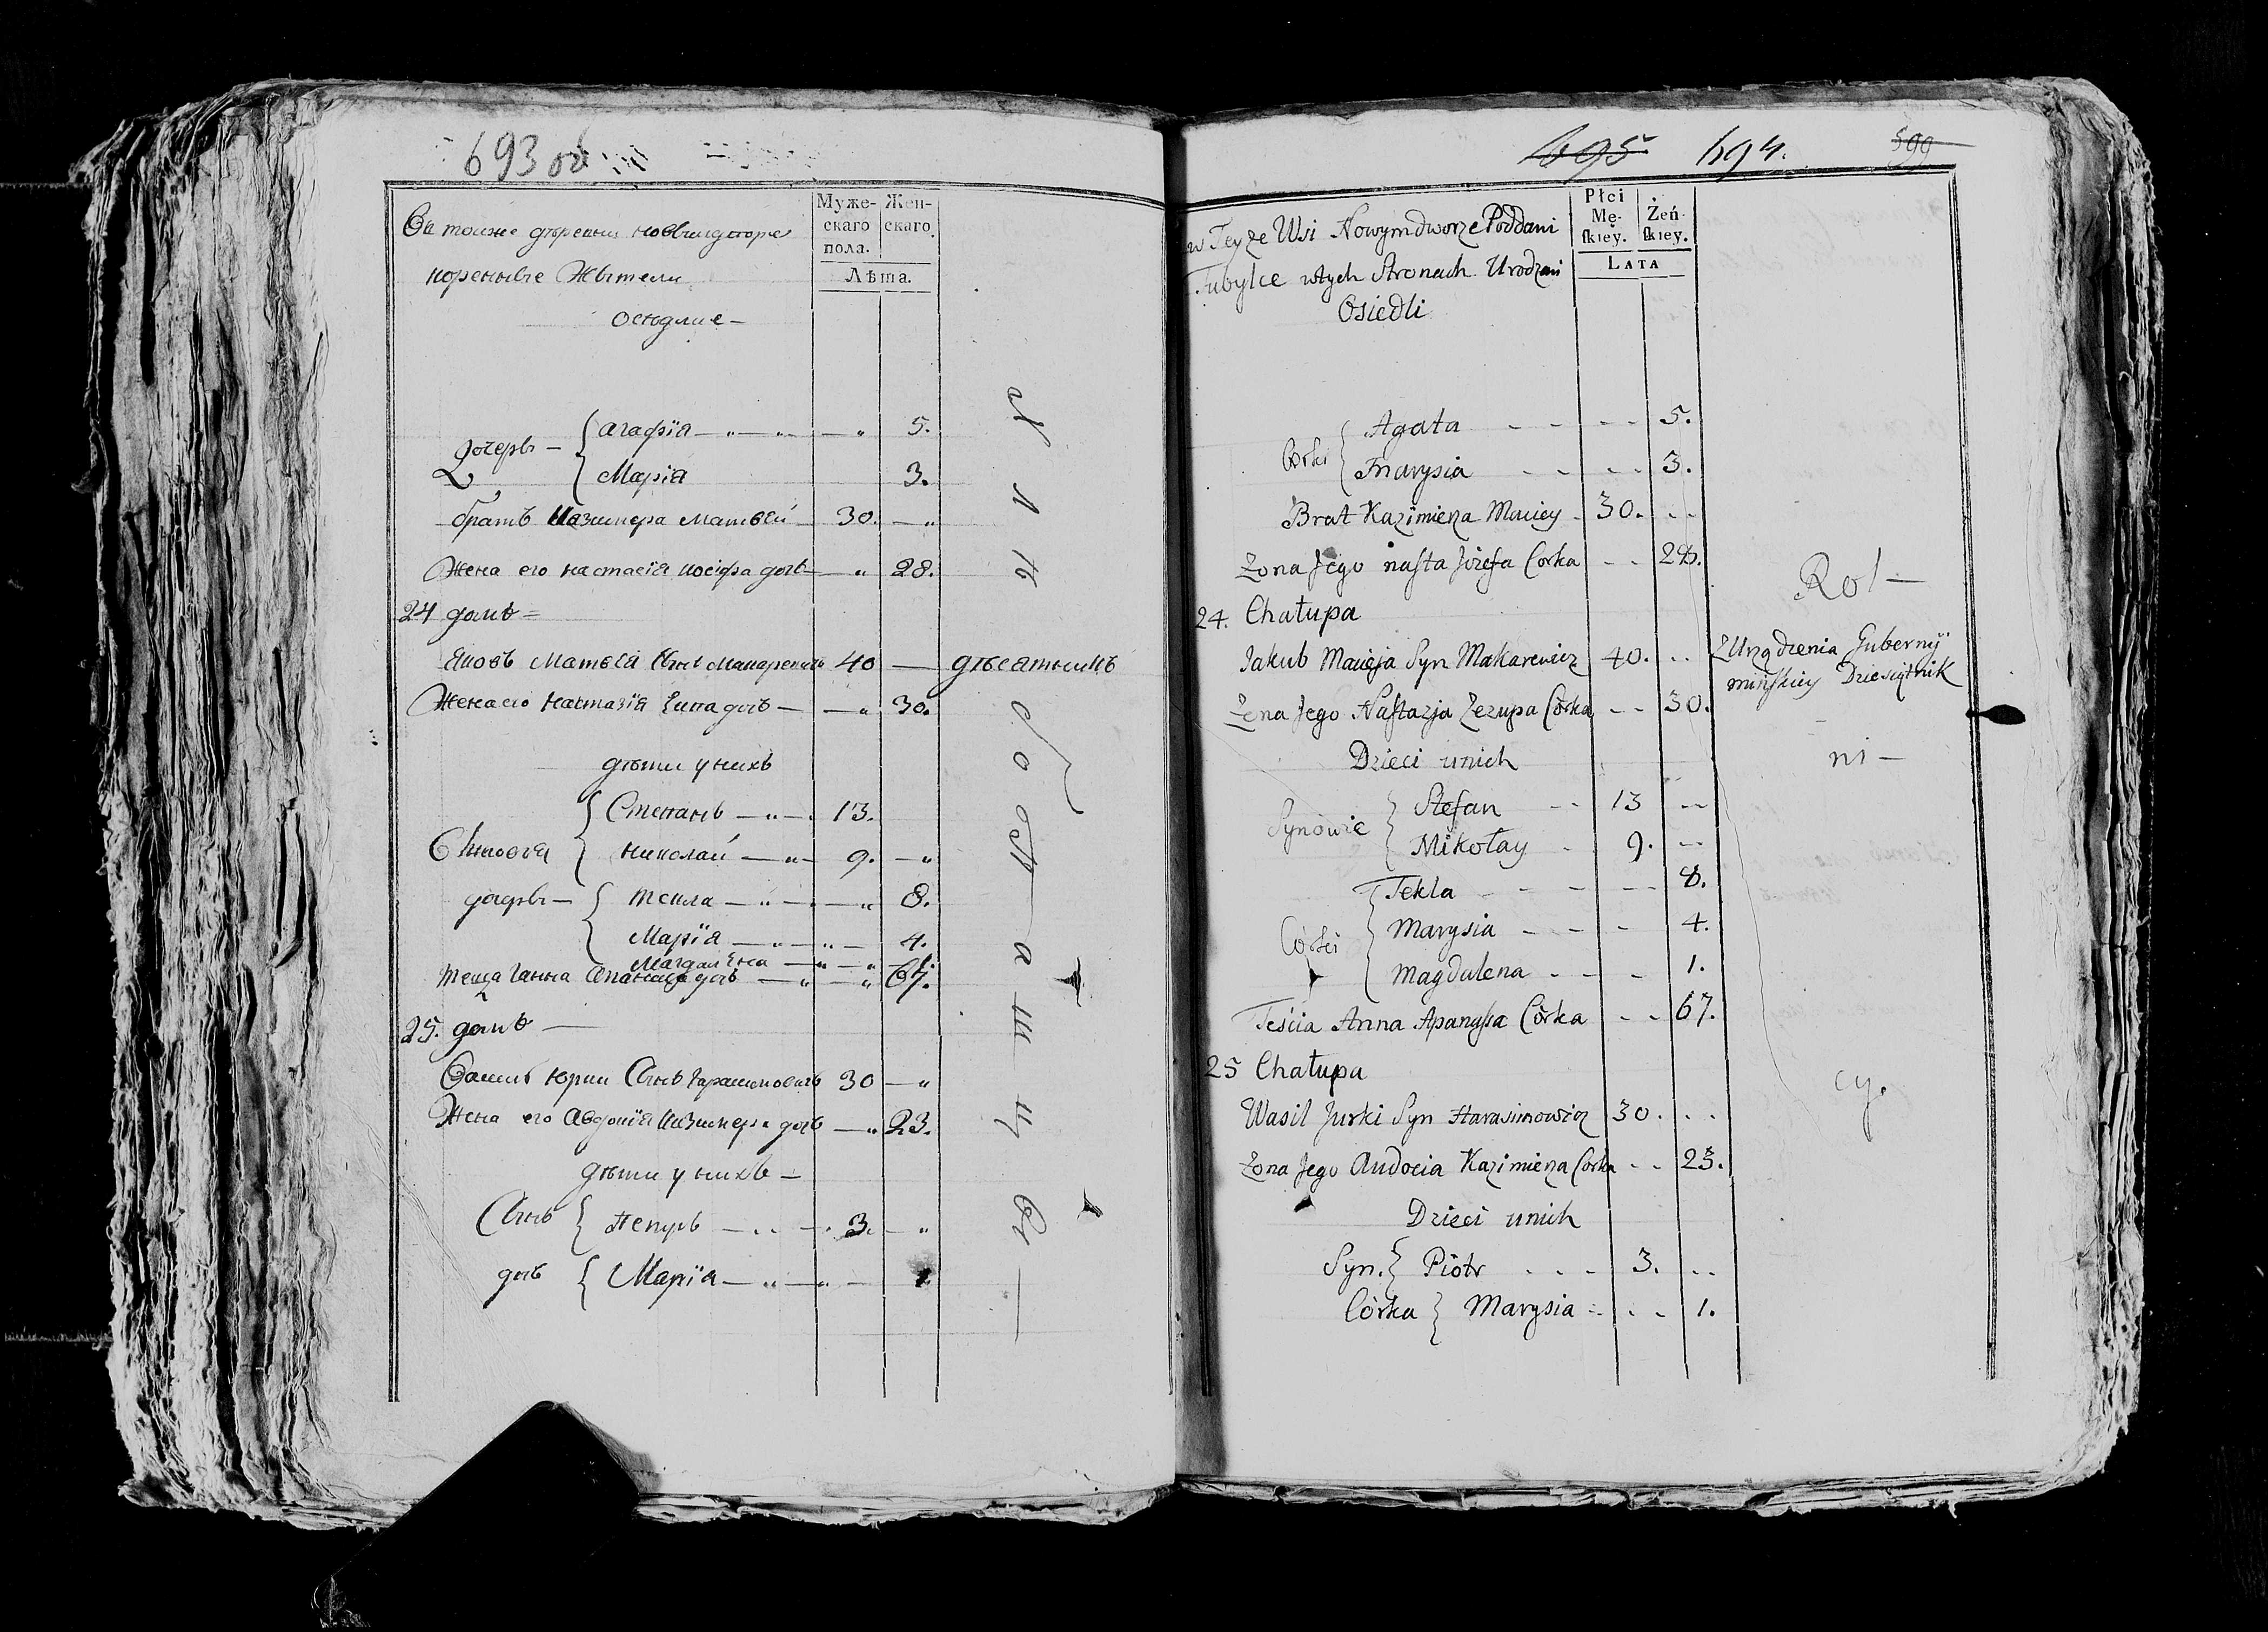 693 об
Въ тоиже деревни новымдворе
Муже-
скаго
пола.
Жен-
скаго.
Лѣта.
коренные Жытели
оседлие —
дочеры — { агафія — " — " — " 5.
{ Марія 3.
братъ Казимера матвей — 30. — "
Жена его настасія иосифа дочь — " 28.
24 домъ =
Яковъ Матвея сынъ Макаревичъ 40 — десятникъ
Жена его Настазія Езипа дочъ — — " 30.
дѣти у нихъ
Сыновья { Степанъ — " — 13.
{ николай — " — 9. — "
дочеры — { текла — " — " 8.
{ Марія — " — " — 4.
Магдалена — " — " 1.
теща Ганна Апанаса дочъ — " — " 67.
25. домъ —
Василь Юрки Сынъ Гарасимовичъ 30 — "
Жена его Авдотія Казимера дочъ — " 23.
дѣти у нихъ —
Сынъ { Петръ — .. — . 3. — "
дочъ { Марія — " — " — 1
695 694. 599
w Teyze Wsi Nowymdworze Poddani
Płci
Mę-
skiey.
Żeń-
skiey.
LATA
Tubylce wtych Stronach Urodzeni
Osiedli
Córki { Agata - - - - 5.
{ Marysia - - - - 3.
Brat Kazimierza Maciey - 30. - -
Zona Jego nasta Józefa Corka - - 28.
Rol —
24. Chałupa
Jakub Macieja Syn Makarewicz 40. - - Z Urządzenia Gubernÿ
minskiey Dziesiątnik
Zona Jego Nastazja Zezupa Córka - - 30.
Dzieci unich
ni —
Synowie { Stefan - - 13 - -
{ Mikołay - - 9. - -
Córki { Tekla - - - - - 8.
{ Marysia - - - - 4.
{ Magdalena - - - - 1.
Teścia Anna Apanassa Córka - - 67.
25 Chałupa
cy.
Wasil Jurki Syn Harasimowicz 30. - -
Zona Jego Audocia Kazimierza Corka - - 23.
Dzieci unich
Syn. { Piotr - - - 3. - -
Córka } Marysia - - - 1.